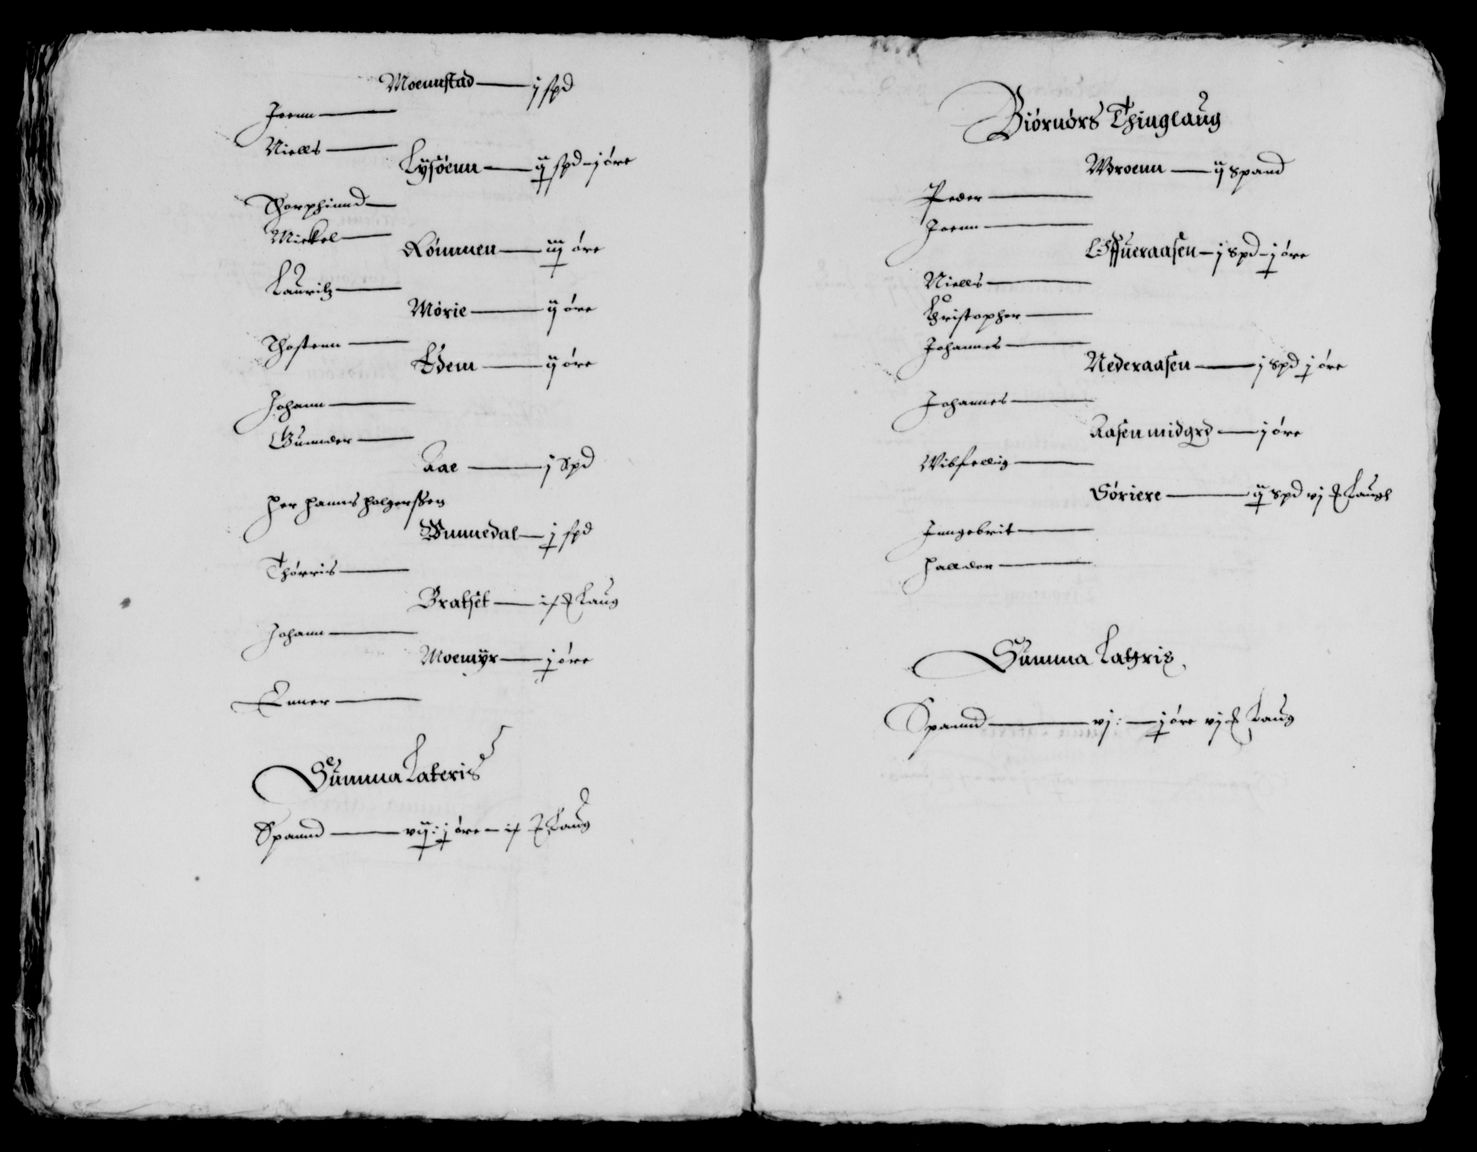 Moennstad — j spd
Joenn —
Niells —
Lysöenn — ij spd – j öre
Thorphinnd —
Mickel —
Rönnnen — iij öre
Lauritz —
Mörie — ij öre
Thostenn —
Edem — ij öre
Johann —
Gunnder —
Aae — j Spd
Her Hanns Holgerssen
Wnnedal — j spd
Thörris —
Bratset — Laug
Johann —
Moemÿr — j öre
Enner —
Summa Lateris
Spannd — vij: j öre – Laug
Biörnörs Thinglaug
Wroenn — ij Spand
Peder —
Joenn —
Offueraasen – j Spd – j öre
Niells —
Christopher —
Johannes —
Nederaasen — j Spd j öre
Johannes —
Aasen midgrd — j öre
Söriere — ij Spd vj Laugh
Inngebrit —
Halldor —
Summa Lateris
Spannd — vj: — j öre vj Laug